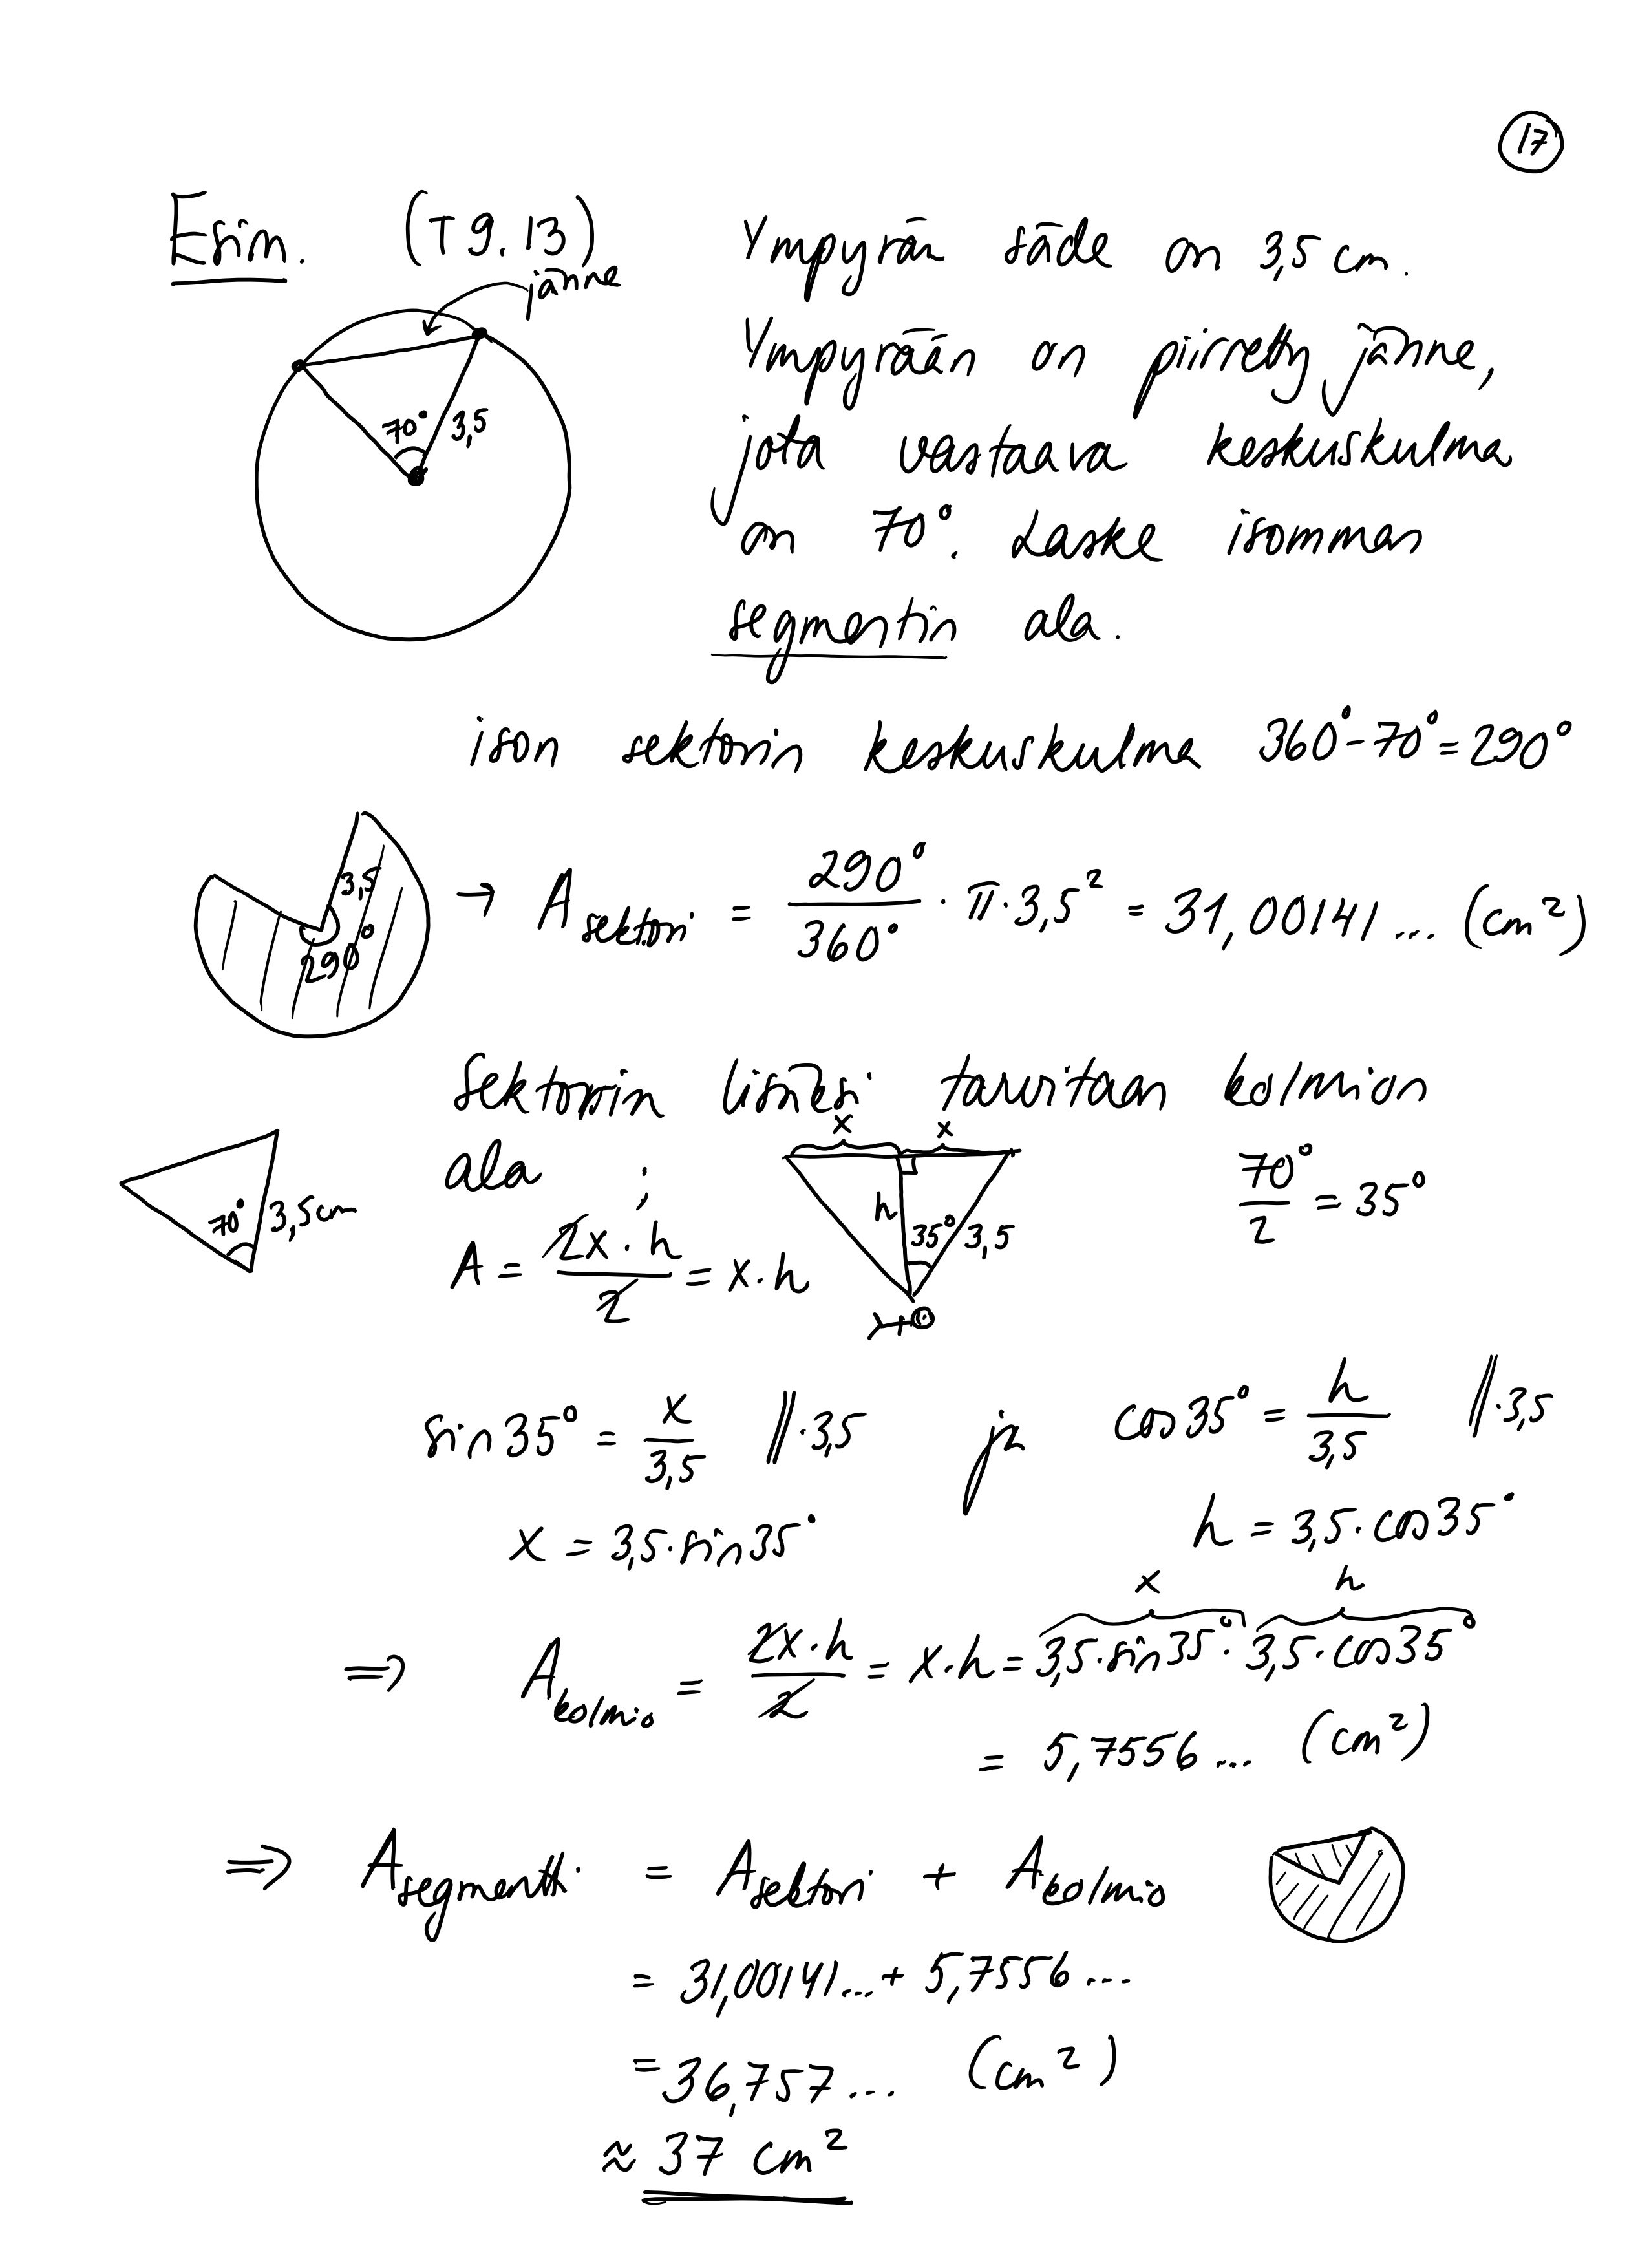 17
Esim. (T 9.13)
jänne
70° 3,5
Ympyrän säde on 3,5 cm.
Ympyrään on piirretty jänne,
jota vastaava keskuskulma
on 70°. Laske isomman
segmentin ala.
ison sektorin keskuskulma 360°-70°=290°
3,5
290°
→ A sektori = 290°/360° · π · 3,5² = 31,00141... (cm²)
Sektorin lisäksi tarvitaan kolmion
ala ;
70° 3,5cm
x x
h 35° 3,5
70°/2 = 35°
A = 2x·h/2 = x·h
sin35° = x/3,5 ‖·3,5 ja cos35° = h/3,5 ‖·3,5
x = 3,5·sin35° h = 3,5·cos35°
x h
⇒ A kolmio = 2x·h/2 = x·h = 3,5·sin35°·3,5·cos35°
= 5,7556... (cm²)
⇒ A segmentti = A sektori + A kolmio
= 31,00141...+ 5,7556...
= 36,757... (cm²)
≈ 37 cm²